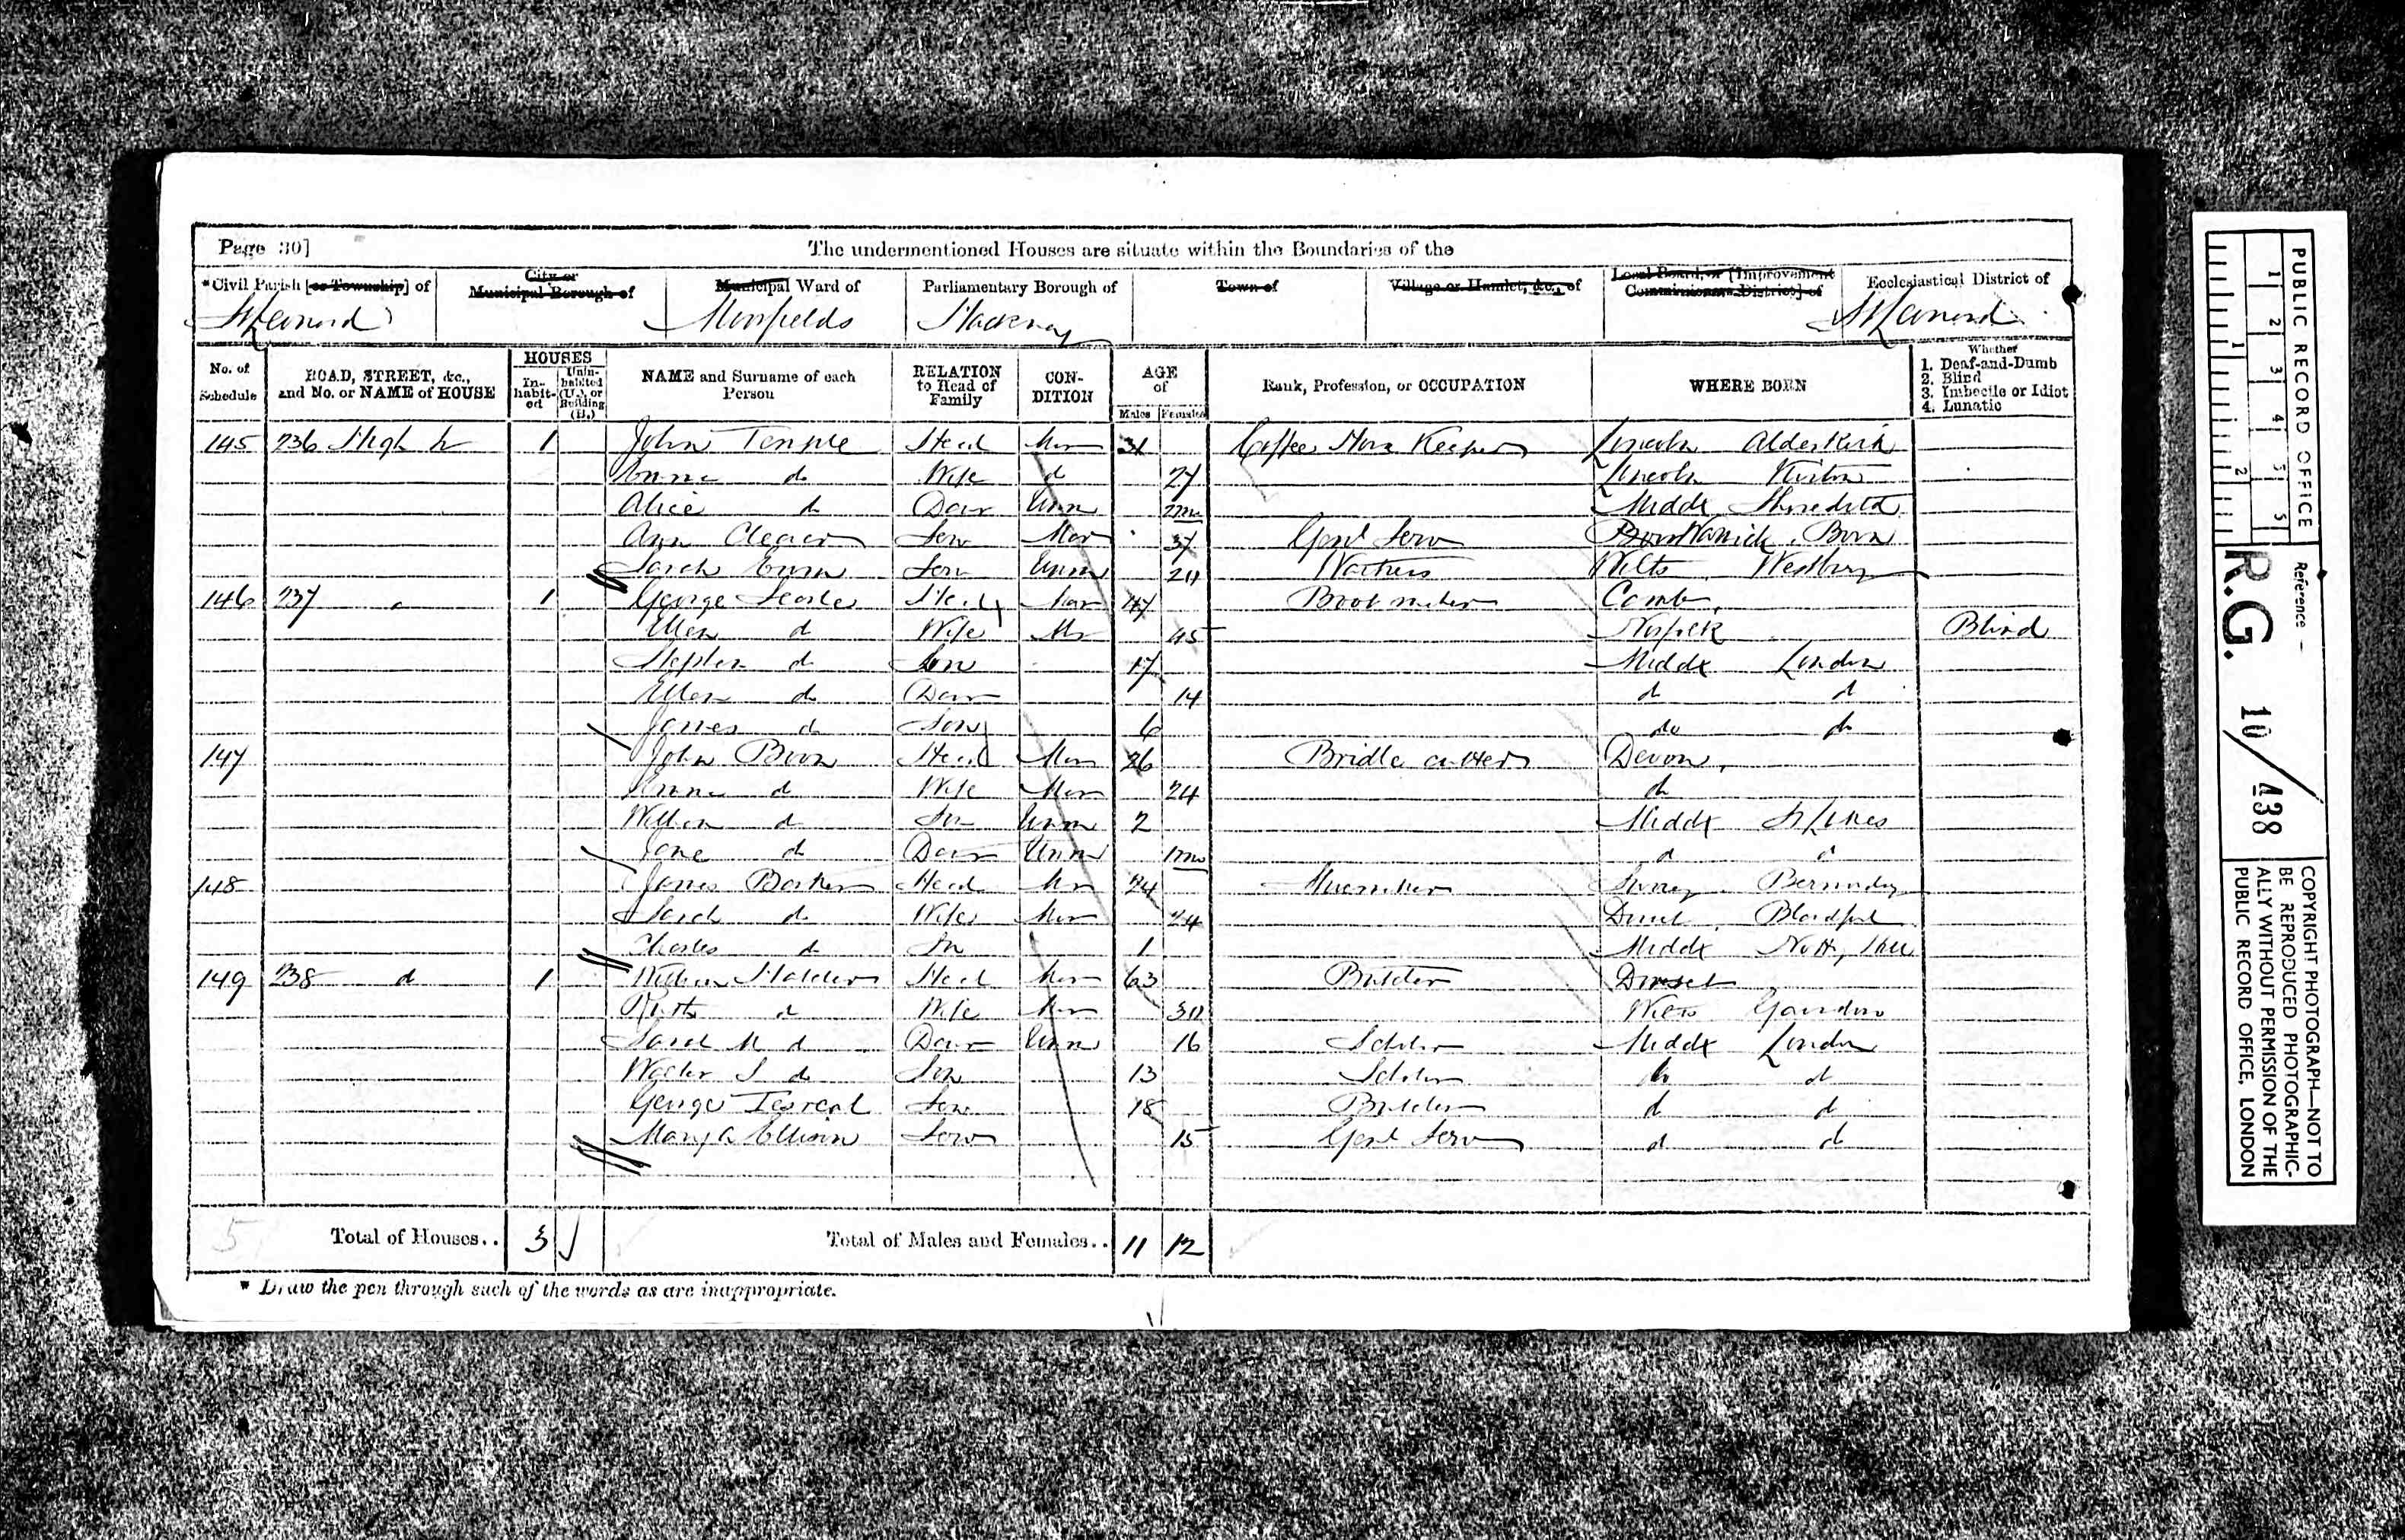 Page 30]
The undermentioned Houses are situate within the Boundaries of the
*Civil Parish [or Township] of
City or Municipal Borough of
Municipal Ward of
Parliamentary Borough of
Town of
Village or Hamlet, &c., of
Local Board, or [Improvement Commissioners District] of
Ecclesiastical District of
St Leonard Hackney St Leonard
No. of Schedule
ROAD, STREET, &c., and No. or NAME of HOUSE
HOUSES
Inhabited
Uninhabited (U.), or Building (B.)
NAME and Surname of each Person
RELATION to Head of Family
CONDITION
AGE of
Males Females
Rank, Profession, or OCCUPATION
WHERE BORN
Whether
1. Deaf-and-Dumb
2. Blind
3. Imbecile or Idiot
4. Lunatic
145 236 High St 1 John Temple Head Mar 31 Coffee House Keeper Lincoln
d Wife d 27 Lincoln Kirton
Alice d Daur Unm Middx Shoreditch
Ann Serv Mar 37 Genl Serv
Sarah Serv Unm 20 Waitress Wilts Westbury
146 237 1 George Head Mar 47 Boot maker Camb
Ellen d Wife Mr 45 Norfolk Blind
Stephen d Son 17 Middx London
Ellen d Daur 14 d d
James d Son 6 do do
147 John Boon Head Mar 26 Bridle cutter Devon
d Wife Mar 24 do
William d Son Unm 2 Middx St Lukes
Jane d Daur Unm d d
148 James Head Mr 24 Shoemaker Surrey
Sarah d Wife Mar 24 Blandford
Charles d Son 1 Middx
149 238 d 1 William Head Mar 63 Butcher Dorset
Ruth d Wife Mar 30
Sarah M d Daur Unm 16 Scholar Middx London
Walter S d Son 13 Scholar d d
George Serv 18 Butcher d d
Mary A Ellison Serv 15 Genl Serv d d
5 Total of Houses.. 3
Total of Males and Females.. 11 12
* Draw the pen through such of the words as are inappropriate.
PUBLIC RECORD OFFICE
Reference :-
R.G. 10/438
COPYRIGHT PHOTOGRAPH—NOT TO
BE REPRODUCED PHOTOGRAPHIC-
ALLY WITHOUT PERMISSION OF THE
PUBLIC RECORD OFFICE, LONDON